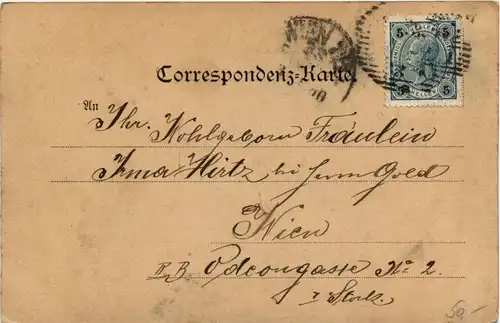 WIEN
Correspondenz-Karte.
5 5
5 5
An
Ihr. Wohlgeborn Fräulein
Irma Hirtz bei Herrn Gold
Wien
Odeongasse No 2.
Stock.
50.-